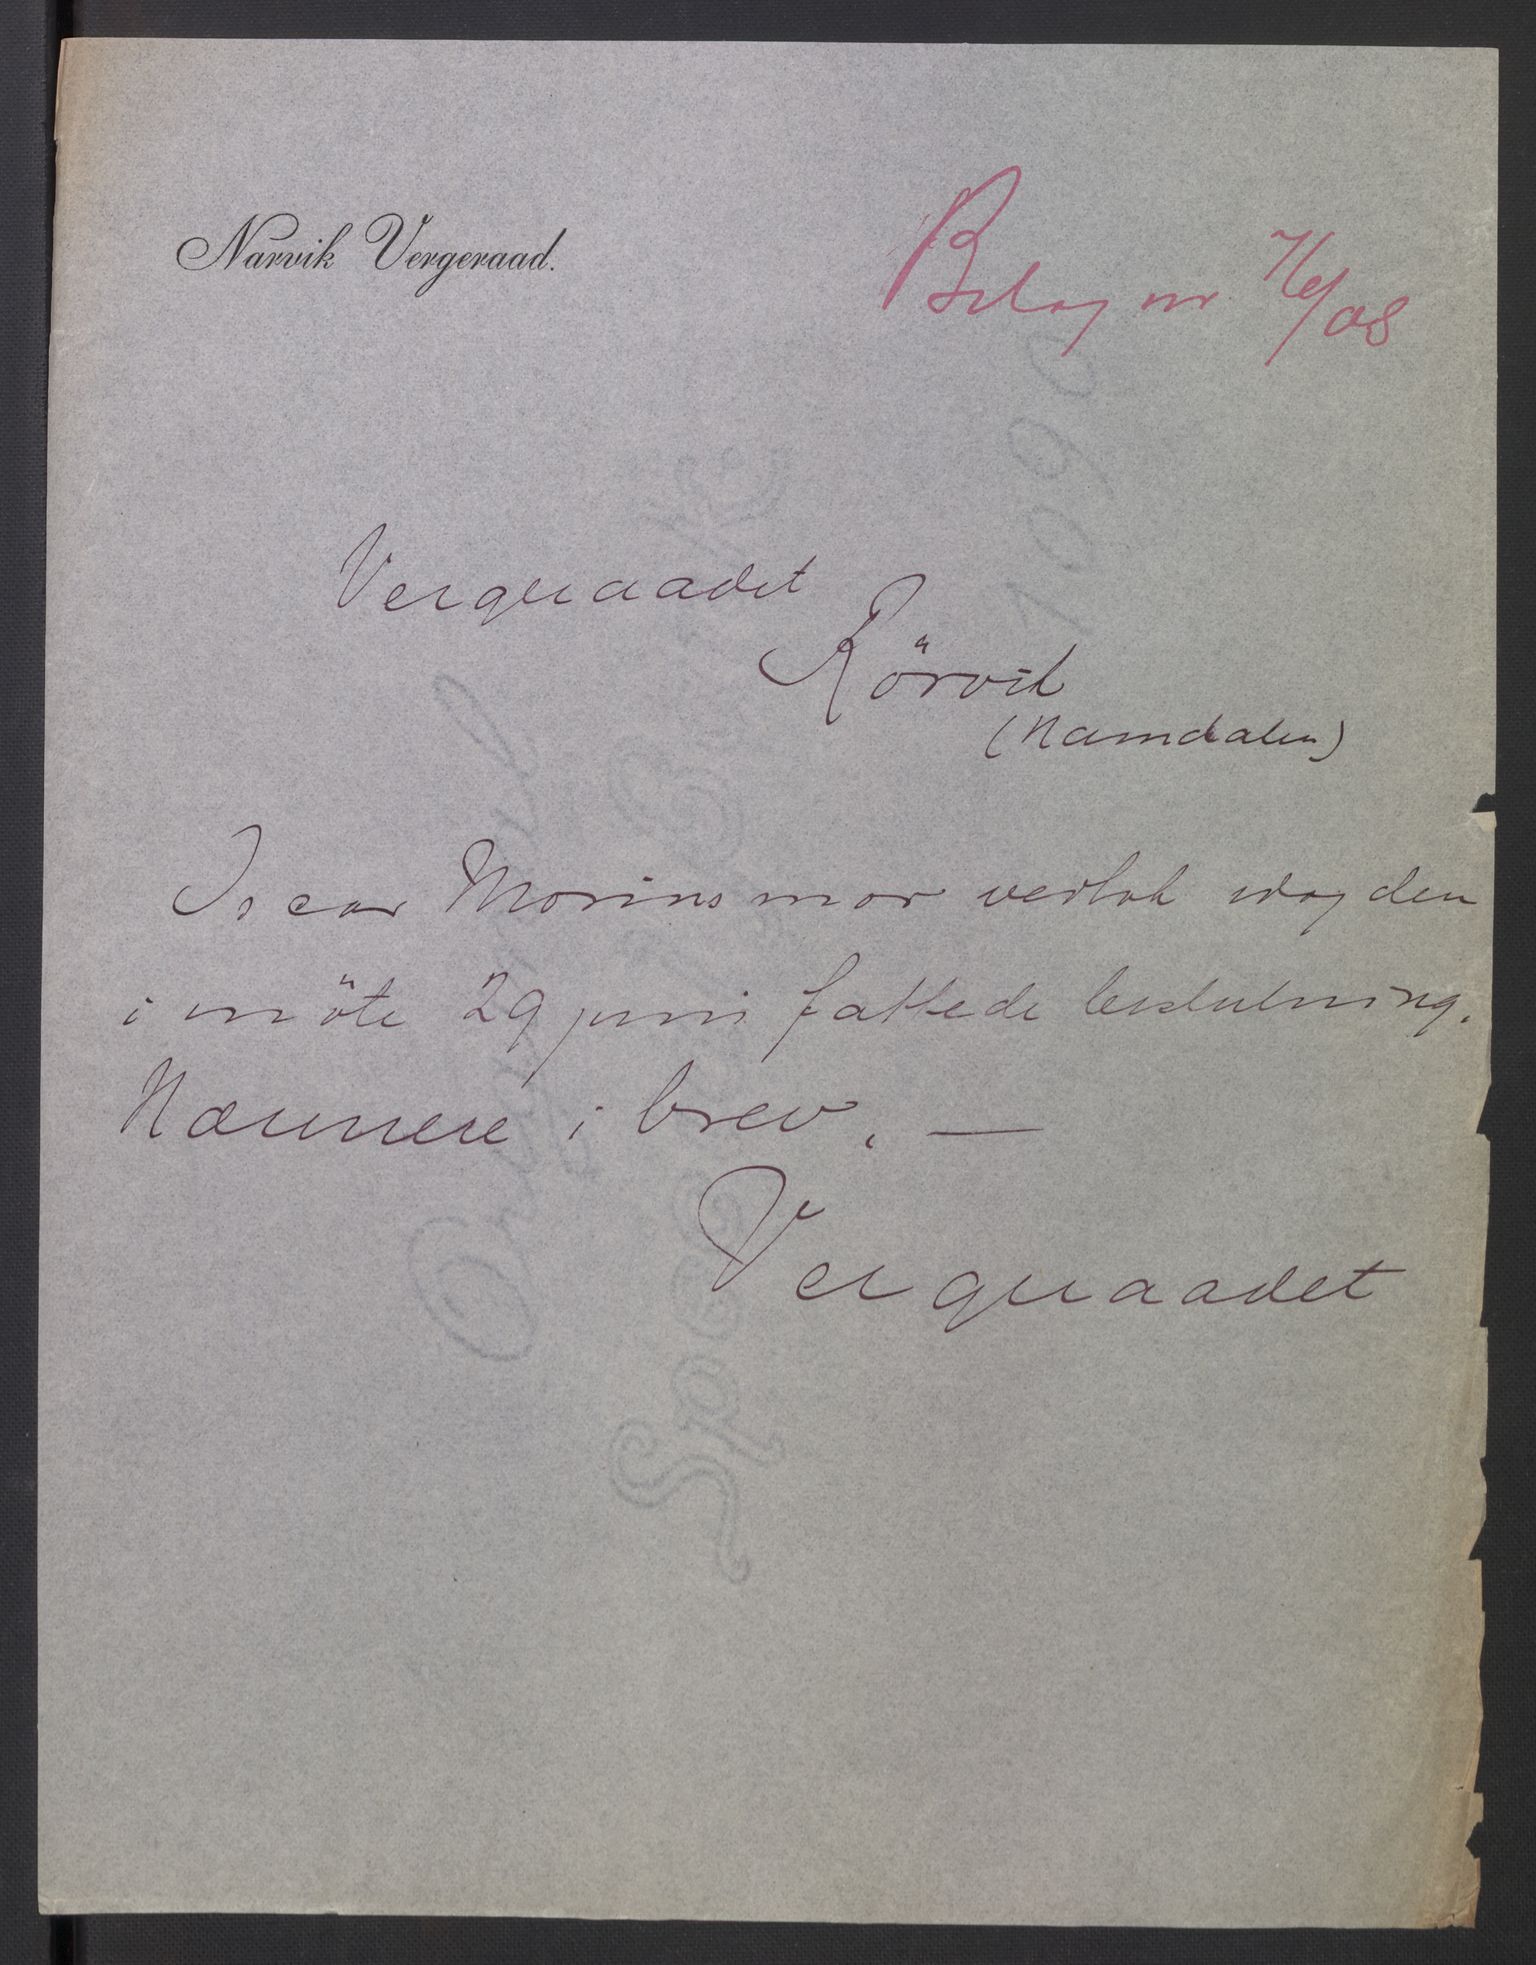 Narvik Vergeraad.
Belag nr 76/08
Vergeraadet
Rörvik
(Namdalen)
Iscar Morins mor vedtok idag den
i möte 29 juni fattede beslutning.
Nærmere i brev. —
Vergeraadet